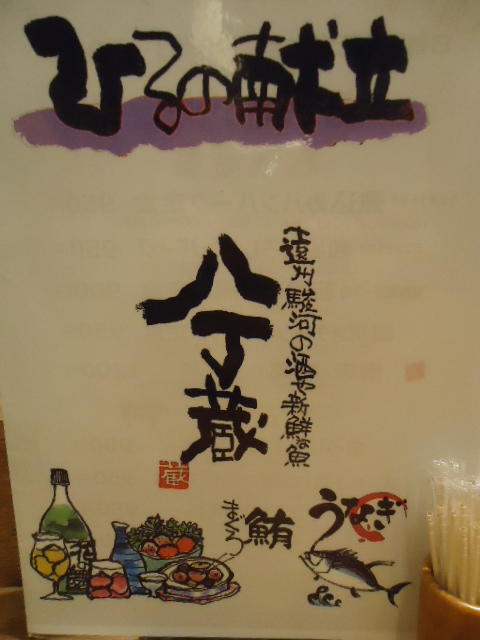 ひるの献立
遠州駿河の酒や新鮮な魚
八丁蔵
蔵
まぐろ
鮪
うなぎ